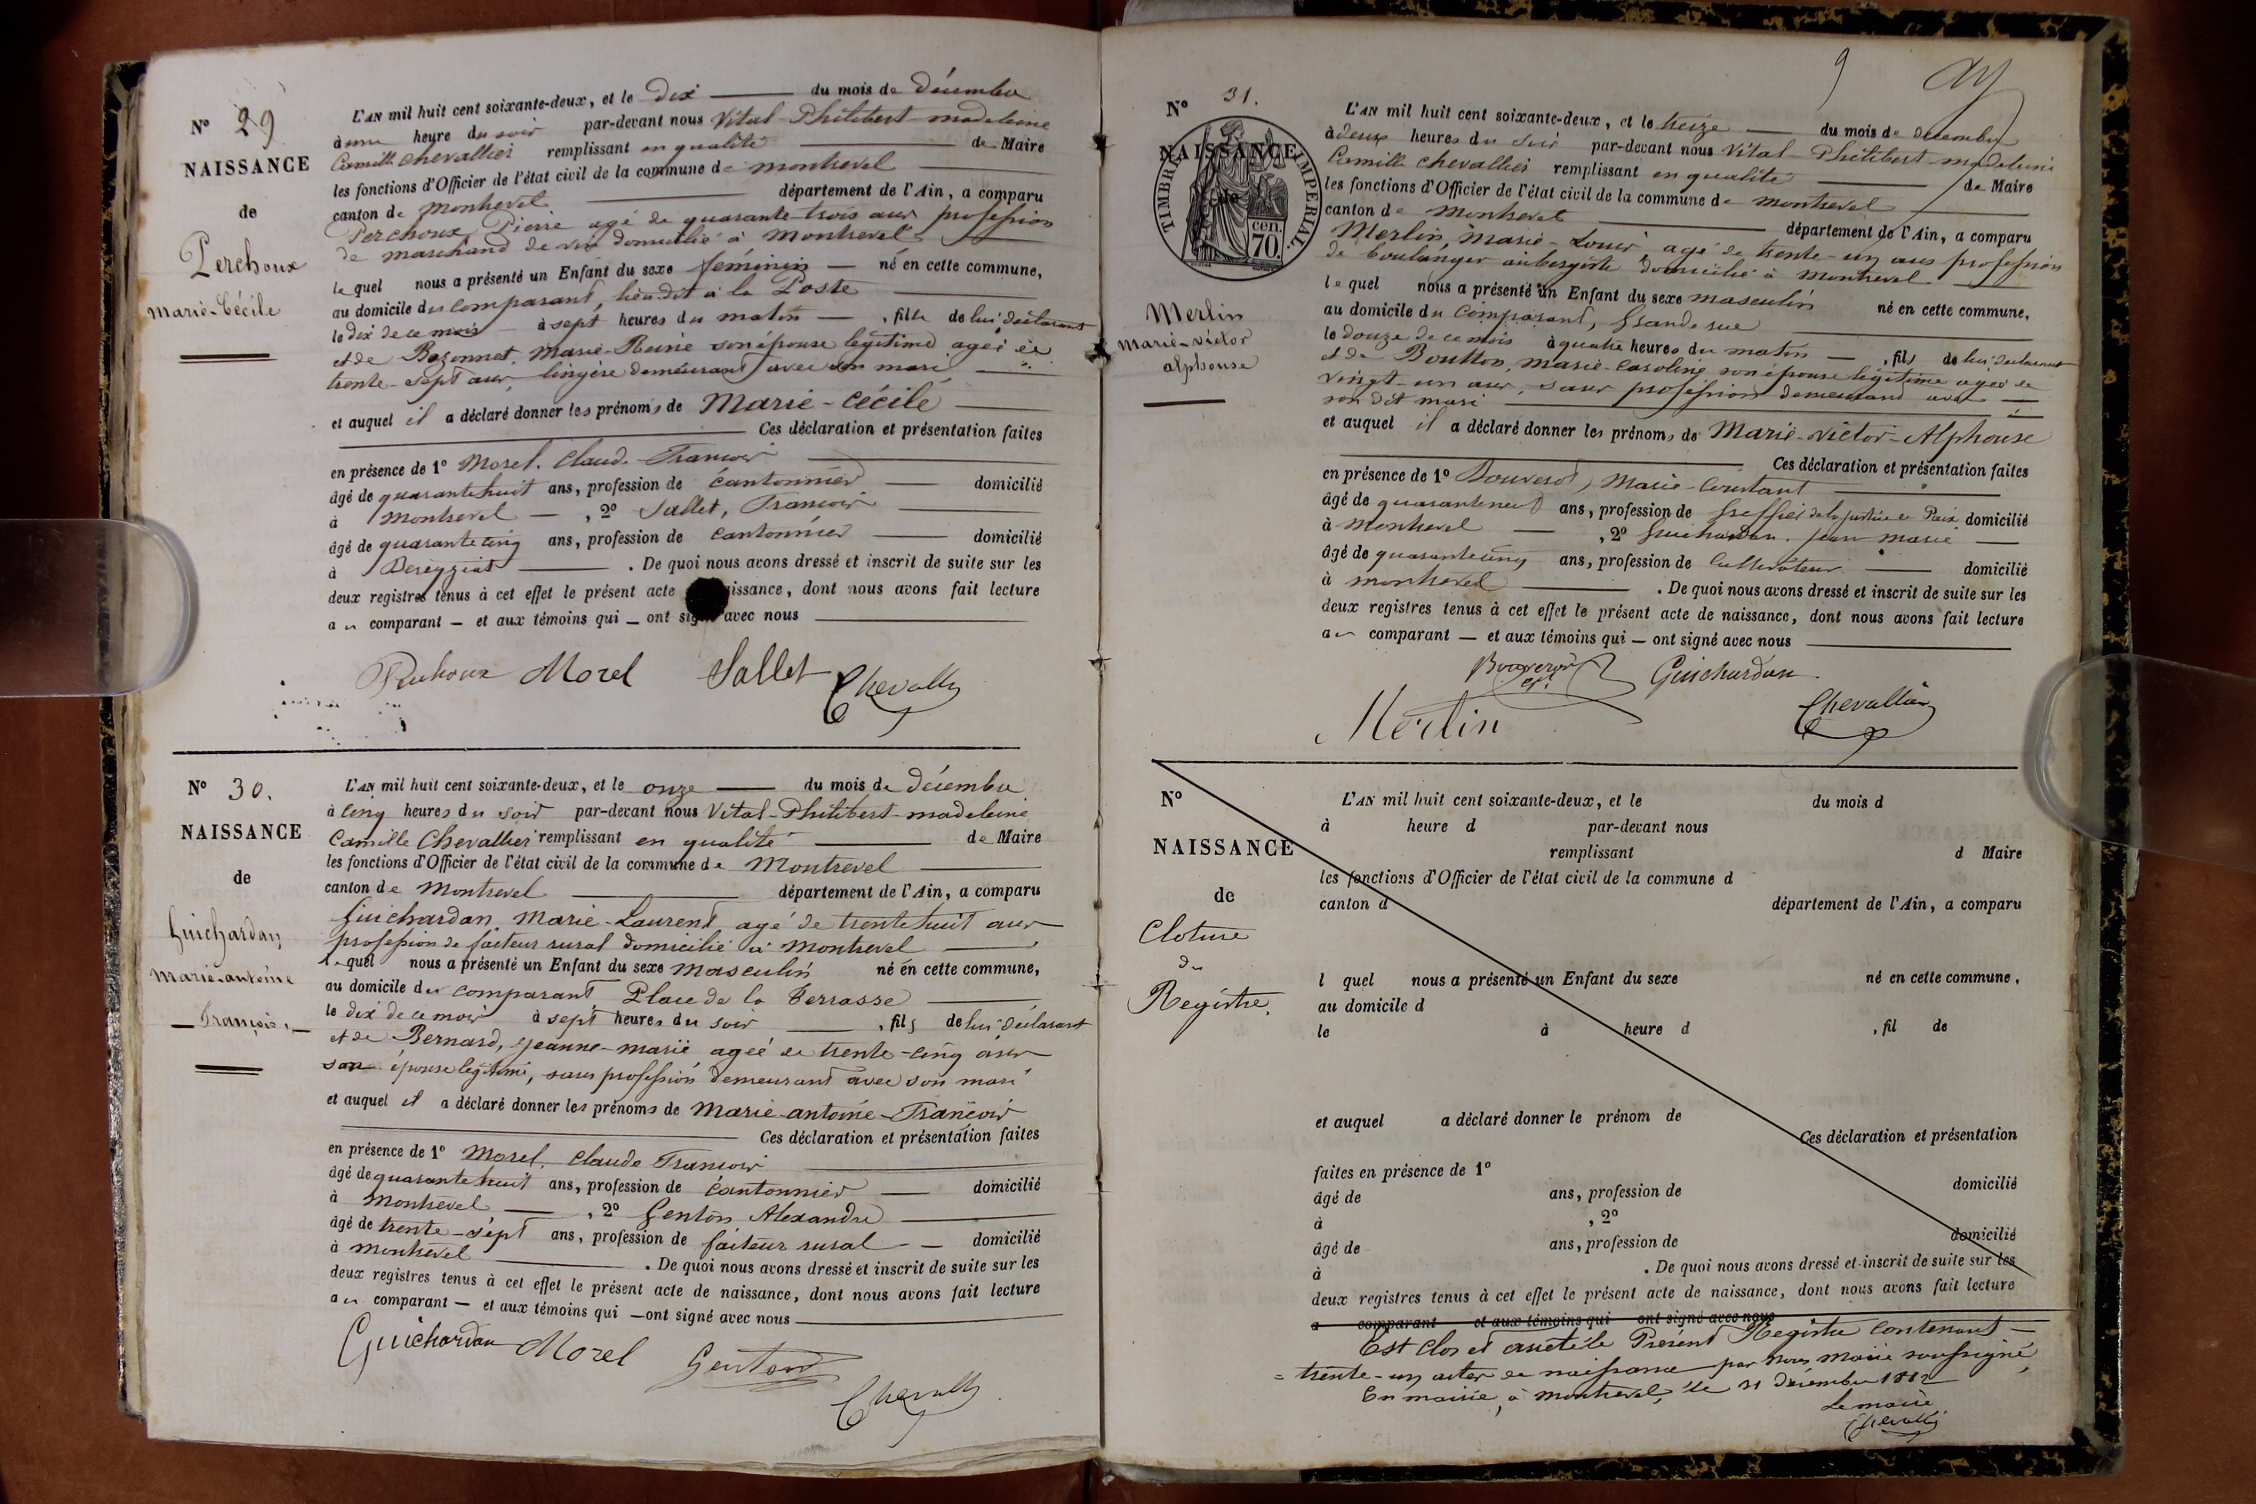 N° 29
NAISSANCE
de
Perchoux
Marie-Cécile
L'AN mil huit cent soixante-deux, et le dix du mois de décembre
à une heure du soir par-devant nous Vital-Philibert-madeleine
Camille Chevallier remplissant en qualité de Maire
les fonctions d'Officier de l'état civil de la commune de montrevel
canton de montrevel département de l'Ain, a comparu
Perchoux, Pierre agé de quarante-trois ans profession
de marchand de vin domicilié à Montrevel
le quel nous a présenté un Enfant du sexe féminin né en cette commune,
au domicile du comparant, lieu dit à la Poste
le dix de ce mois à sept heures du matin, fille de lui déclarant
et de Bozonnet, Marie-Reine son épouse légitime agée de
trente-sept ans, lingère demeurant avec son mari
et auquel il a déclaré donner les prénoms de Marie-Cécile
Ces déclaration et présentation faites
en présence de 1° Morel, Claude-François
âgé de quarante huit ans, profession de cantonnier domicilié
à Montrevel, 2° Sallet, François
âgé de quarante cinq ans, profession de cantonnier domicilié
à Béréyziat. De quoi nous avons dressé et inscrit de suite sur les
deux registres tenus à cet effet le présent acte issance, dont nous avons fait lecture
au comparant — et aux témoins qui — ont signé avec nous
Perchoux Morel Sallet Chevallier
N° 30.
NAISSANCE
de
Guichardan
Marie-antoine
François
L'AN mil huit cent soixante-deux, et le onze du mois de décembre
à cinq heures du soir par-devant nous Vital-Philibert-madeleine
Camille Chevallier remplissant en qualité de Maire
les fonctions d'Officier de l'état civil de la commune de Montrevel
canton de Montrevel département de l'Ain, a comparu
Guichardan, Marie-Laurent agé de trente huit ans
profession de facteur rural domicilié à Montrevel
le quel nous a présenté un Enfant du sexe masculin né en cette commune,
au domicile du comparant Place de la Terrasse
le dix de ce mois à sept heures du soir, fils de lui déclarant
et de Bernard, Jeanne-marie agée de trente-cinq ans
son épouse légitime, sans profession demeurant avec son mari
et auquel il a déclaré donner les prénoms de Marie-antoine-François
Ces déclaration et présentation faites
en présence de 1° Morel, Claude François
âgé de quarante huit ans, profession de cantonnier domicilié
à Montrevel, 2° Genton Alexandre
âgé de trente-sept ans, profession de facteur rural domicilié
à Montrevel. De quoi nous avons dressé et inscrit de suite sur les
deux registres tenus à cet effet le présent acte de naissance, dont nous avons fait lecture
au comparant — et aux témoins qui — ont signé avec nous
Guichardan Morel Genton
Chevallier
9
N° 31.
NAISSANCE
de
TIMBRE IMPERIAL.
cen.
70.
Merlin
Marie-Victor
alphonse
L'AN mil huit cent soixante-deux, et le treize du mois de décembre
à deux heures du soir par-devant nous Vital-Philibert-madeleine
Camille Chevallier remplissant en qualité de Maire
les fonctions d'Officier de l'état civil de la commune de montrevel
canton de Montrevel département de l'Ain, a comparu
Merlin, Marie-Louis agé de trente-un ans profession
de boulanger aubergiste domicilié à Montrevel
le quel nous a présenté un Enfant du sexe masculin né en cette commune,
au domicile du comparant, Grande rue
le douze de ce mois à quatre heures du matin, fils de lui déclarant
et de Boutton, Marie-Caroline son épouse légitime agée de
vingt-un ans, sans profession demeurant avec
son dit mari
et auquel il a déclaré donner les prénoms de Marie-Victor-Alphonse
Ces déclaration et présentation faites
en présence de 1° Bouverot, Marie-Constant
âgé de quarante neuf ans, profession de Greffier de la justice de Paix domicilié
à Montrevel, 2° Guichardan, Jean marie
âgé de quarante cinq ans, profession de Cultivateur domicilié
à montrevel. De quoi nous avons dressé et inscrit de suite sur les
deux registres tenus à cet effet le présent acte de naissance, dont nous avons fait lecture
au comparant — et aux témoins qui — ont signé avec nous
Bouverot Guichardan
Merlin Chevallier
N°
NAISSANCE
de
Cloture
du
Registre.
L'AN mil huit cent soixante-deux, et le du mois d
à heure d par-devant nous
remplissant d Maire
les fonctions d'Officier de l'état civil de la commune d
canton d département de l'Ain, a comparu
l quel nous a présenté un Enfant du sexe né en cette commune,
au domicile d
le à heure d , fil de
et auquel a déclaré donner le prénom de
Ces déclaration et présentation
faites en présence de 1°
âgé de ans, profession de domicilié
à , 2°
âgé de ans, profession de domicilié
à . De quoi nous avons dressé et inscrit de suite sur les
deux registres tenus à cet effet le présent acte de naissance, dont nous avons fait lecture
a comparant et aux témoins qui ont signé avec nous
Est clos et arrêté le Présent Registre contenant
trente-un actes de naissance par nous Maire soussigné,
En mairie, à Montrevel, le 31 décembre 1862
Le maire
Chevallier